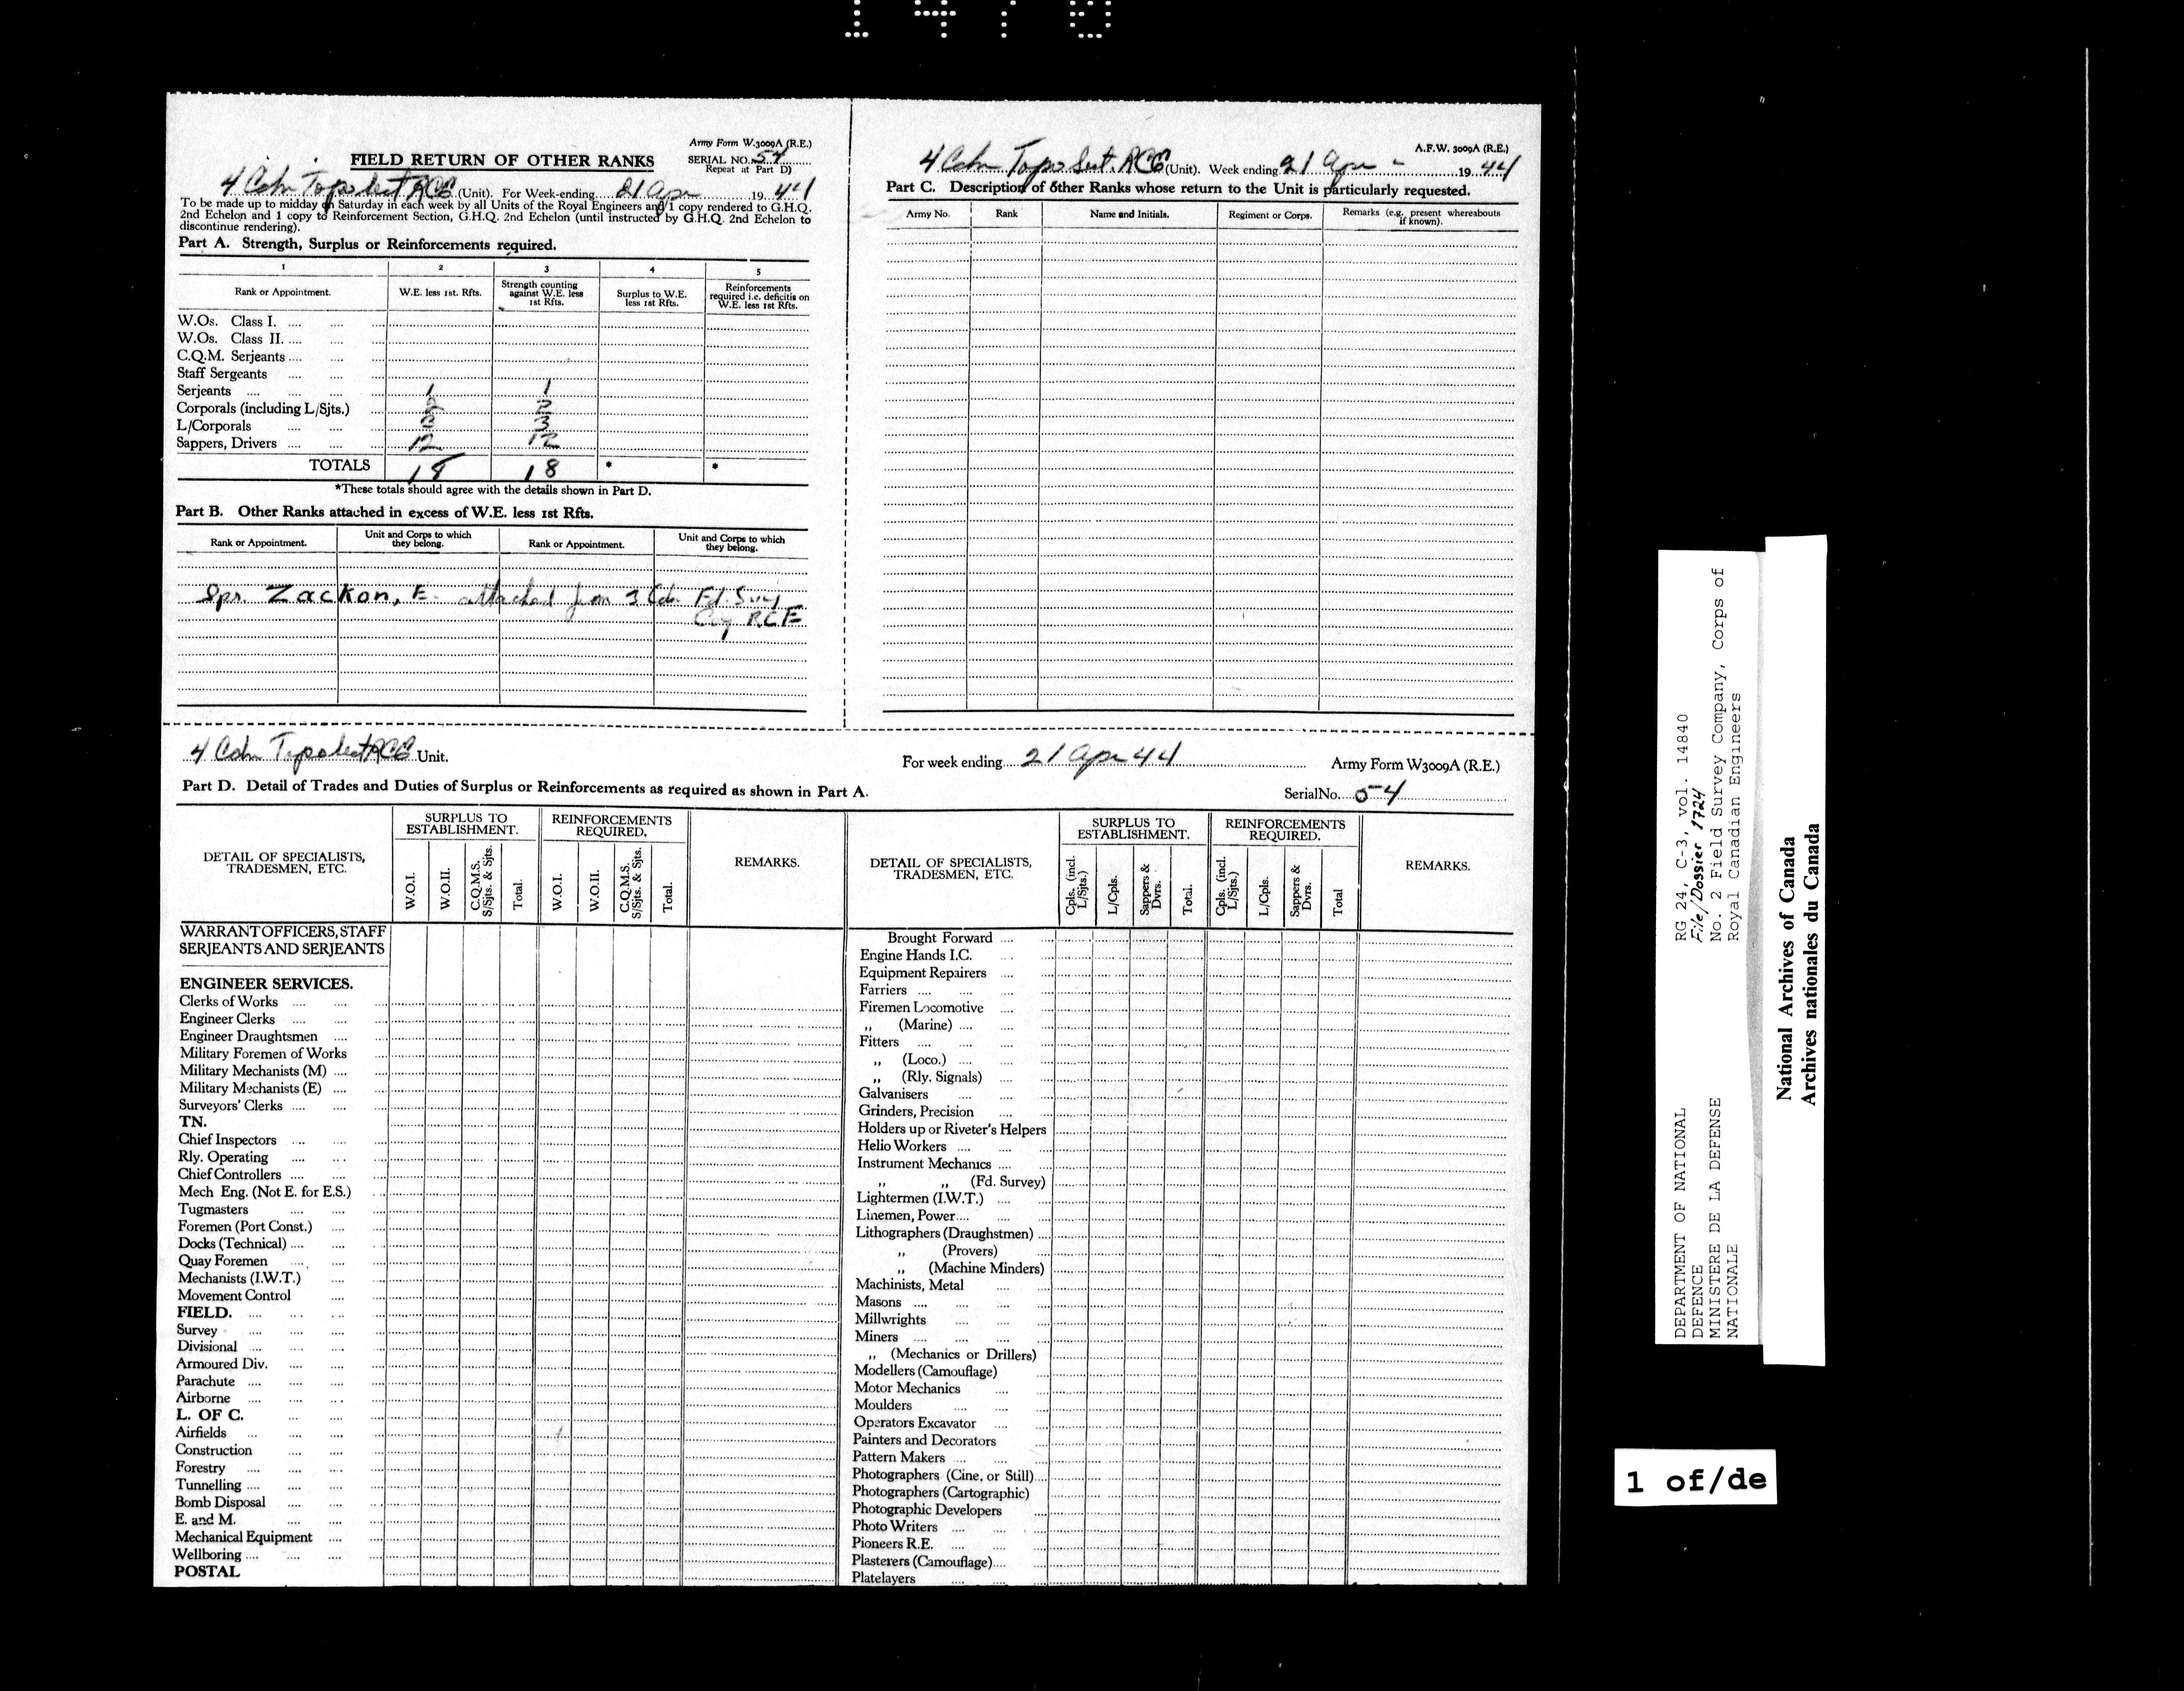 1470
Army Form W.3009A (R.E.)
FIELD RETURN OF OTHER RANKS
SERIAL NO. 54
Repeat at Part D)
4 Cdn Topo Sect RCE (Unit). For Week-ending 21 Apr 1944
To be made up to midday on Saturday in each week by all Units of the Royal Engineers and 1 copy rendered to G.H.Q.
2nd Echelon and 1 copy to Reinforcement Section, G.H.Q. 2nd Echelon (until instructed by G.H.Q. 2nd Echelon to
discontinue rendering).
Part A. Strength, Surplus or Reinforcements required.
1 2 3 4 5
Rank or Appointment. W.E. less 1st. Rfts. Strength counting against W.E. less 1st Rfts. Surplus to W.E. less 1st Rfts. Reinforcements required i.e. deficitis on W.E. less 1st Rfts.
W.Os. Class I.
W.Os. Class II.
C.Q.M. Serjeants
Staff Sergeants
Serjeants 1 1
Corporals (including L/Sjts.) 2 2
L/Corporals 3 3
Sappers, Drivers 12 12
TOTALS 18 18 * *
*These totals should agree with the details shown in Part D.
Part B. Other Ranks attached in excess of W.E. less 1st Rfts.
Rank or Appointment. Unit and Corps to which they belong. Rank or Appointment. Unit and Corps to which they belong.
Spr. Zackon, E. attached from 3 Cdn Fd. Survey
Coy RCE
A.F.W. 3009A (R.E.)
4 Cdn Topo Sect. RCE (Unit). Week ending 21 Apr - 1944
Part C. Description of other Ranks whose return to the Unit is particularly requested.
Army No. Rank Name and Initials. Regiment or Corps. Remarks (e.g. present whereabouts if known).
4 Cdn Topo Sect RCE Unit. For week ending 21 Apr 44 Army Form W3009A (R.E.)
Part D. Detail of Trades and Duties of Surplus or Reinforcements as required as shown in Part A.
Serial No. 54
DETAIL OF SPECIALISTS, TRADESMEN, ETC.
SURPLUS TO ESTABLISHMENT.
REINFORCEMENTS REQUIRED.
REMARKS.
W.O.I. W.O.II. C.Q.M.S. S/Sjts. & Sjts. Total. W.O.I. W.O.II. C.Q.M.S. S/Sjts. & Sjts. Total.
WARRANT OFFICERS, STAFF
SERJEANTS AND SERJEANTS
ENGINEER SERVICES.
Clerks of Works
Engineer Clerks
Engineer Draughtsmen
Military Foremen of Works
Military Mechanists (M)
Military Mechanists (E)
Surveyors' Clerks
TN.
Chief Inspectors
Rly. Operating
Chief Controllers
Mech Eng. (Not E. for E.S.)
Tugmasters
Foremen (Port Const.)
Docks (Technical)
Quay Foremen
Mechanists (I.W.T.)
Movement Control
FIELD.
Survey
Divisional
Armoured Div.
Parachute
Airborne
L. OF C.
Airfields
Construction
Forestry
Tunnelling
Bomb Disposal
E. and M.
Mechanical Equipment
Wellboring
POSTAL
DETAIL OF SPECIALISTS, TRADESMEN, ETC.
SURPLUS TO ESTABLISHMENT.
REINFORCEMENTS REQUIRED.
REMARKS.
Cpls. (incl. L/Sjts.) L/Cpls. Sappers & Dvrs. Total. Cpls. (incl. L/Sjts.) L/Cpls. Sappers & Dvrs. Total
Brought Forward
Engine Hands I.C.
Equipment Repairers
Farriers
Firemen Locomotive
,, (Marine)
Fitters
,, (Loco.)
,, (Rly. Signals)
Galvanisers
Grinders, Precision
Holders up or Riveter's Helpers
Helio Workers
Instrument Mechanics
,, ,, (Fd. Survey)
Lightermen (I.W.T.)
Linemen, Power
Lithographers (Draughstmen)
,, (Provers)
,, (Machine Minders)
Machinists, Metal
Masons
Millwrights
Miners
,, (Mechanics or Drillers)
Modellers (Camouflage)
Motor Mechanics
Moulders
Operators Excavator
Painters and Decorators
Pattern Makers
Photographers (Cine, or Still)
Photographers (Cartographic)
Photographic Developers
Photo Writers
Pioneers R.E.
Plasterers (Camouflage)
Platelayers
DEPARTMENT OF NATIONAL
DEFENCE
MINISTERE DE LA DEFENSE
NATIONALE
RG 24, C-3, vol. 14840
File/Dossier 1724
No. 2 Field Survey Company, Corps of
Royal Canadian Engineers
National Archives of Canada
Archives nationales du Canada
1 of/de